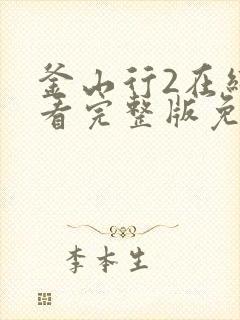 釜山行2在线
看完整版免
李本生